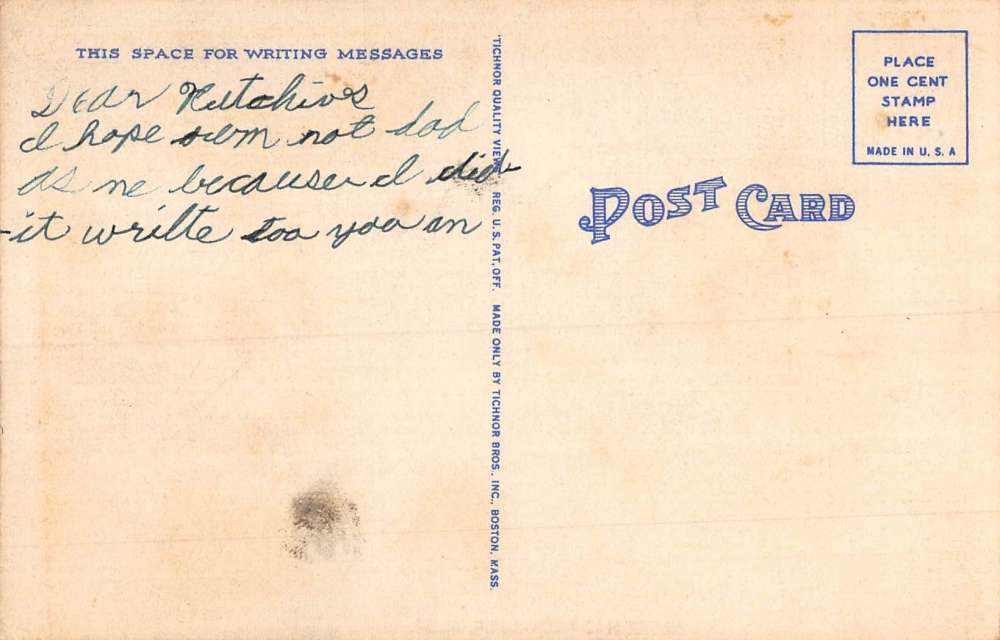 THIS SPACE FOR WRITING MESSAGES
Dear Hutchins
I hope oum not dad
as me because I did
it wrilte too you an
"TICHNOR QUALITY VIEWS" REG. U. S. PAT. OFF. MADE ONLY BY TICHNOR BROS., INC., BOSTON, MASS.
PLACE
ONE CENT
STAMP
HERE
MADE IN U. S. A
POST CARD